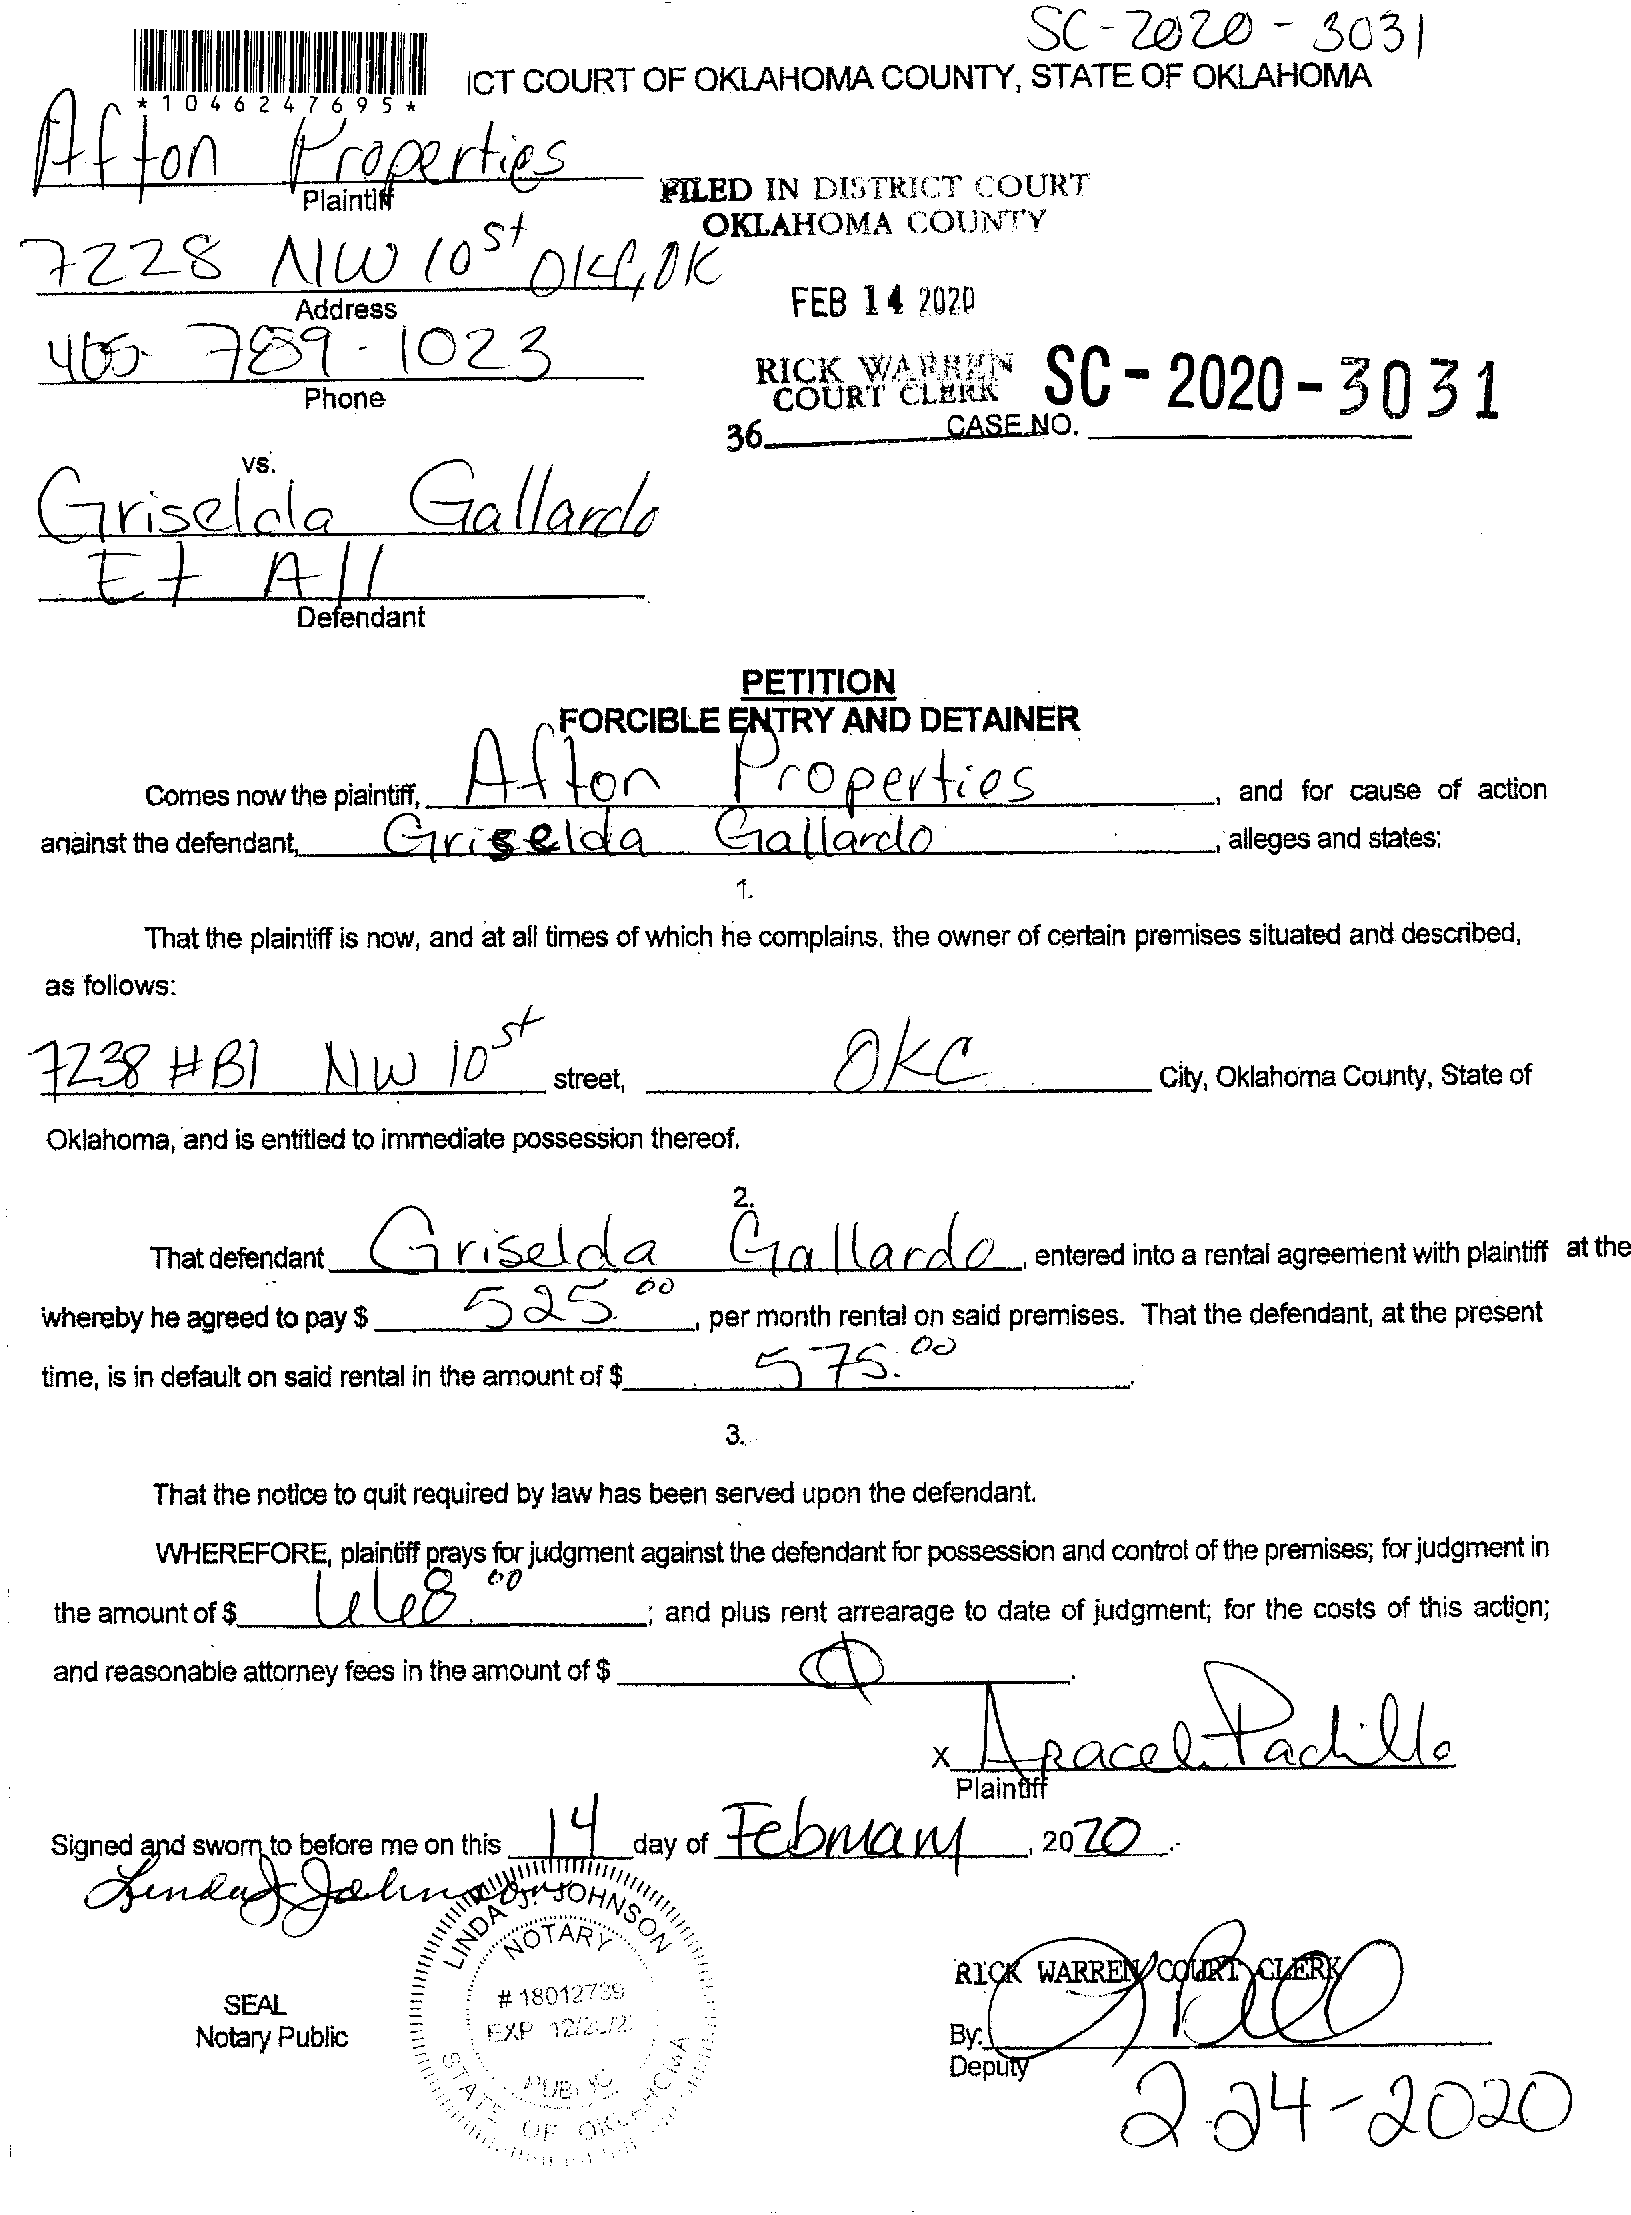 SC-2020-3031
ICT COURT OF OKLAHOMA COUNTY, STATE OF OKLAHOMA
*1046247695*
Afton Properties
Plaintiff
FILED IN DISTRICT COURT
OKLAHOMA COUNTY
7228 NW 10 st OKC, OK
Address
FEB 14 2020
405- 789-1023
Phone
RICK WARREN
COURT CLERK
SC-2020-3031
36 CASE NO.
vs.
Griselda Gallardo
Et All
Defendant
PETITION
FORCIBLE ENTRY AND DETAINER
Comes now the plaintiff, Afton Properties, and for cause of action
against the defendant, Griselda Gallardo, alleges and states:
1.
That the plaintiff is now, and at all times of which he complains, the owner of certain premises situated and described,
as follows:
7238 #B1 NW 10 st street, OKC City, Oklahoma County, State of
Oklahoma, and is entitled to immediate possession thereof.
2.
That defendant Griselda Gallardo, entered into a rental agreement with plaintiff at the
whereby he agreed to pay $ 525.00, per month rental on said premises. That the defendant, at the present
time, is in default on said rental in the amount of $ 575.00.
3.
That the notice to quit required by law has been served upon the defendant.
WHEREFORE, plaintiff prays for judgment against the defendant for possession and control of the premises; for judgment in
the amount of $ 668.00; and plus rent arrearage to date of judgment; for the costs of this action;
and reasonable attorney fees in the amount of $ 0.
x Araceli Padilla
Plaintiff
Signed and sworn to before me on this 14 day of February, 2020.
Linda J Johnson
LINDA J. JOHNSON
NOTARY
# 18012739
EXP
PUBLIC
STATE OF OKLAHOMA
SEAL
Notary Public
RICK WARREN COURT CLERK
By:
Deputy
2-24-2020